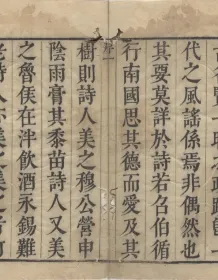 代之風謠係焉非偶然也
其要莫詳於詩若召伯循
行南國思其德而愛及其
樹則詩人美之穆公營申
陰雨膏其黍苗詩人又美
之魯侯在泮飲酒永錫難
老詩人亦美之美之者何